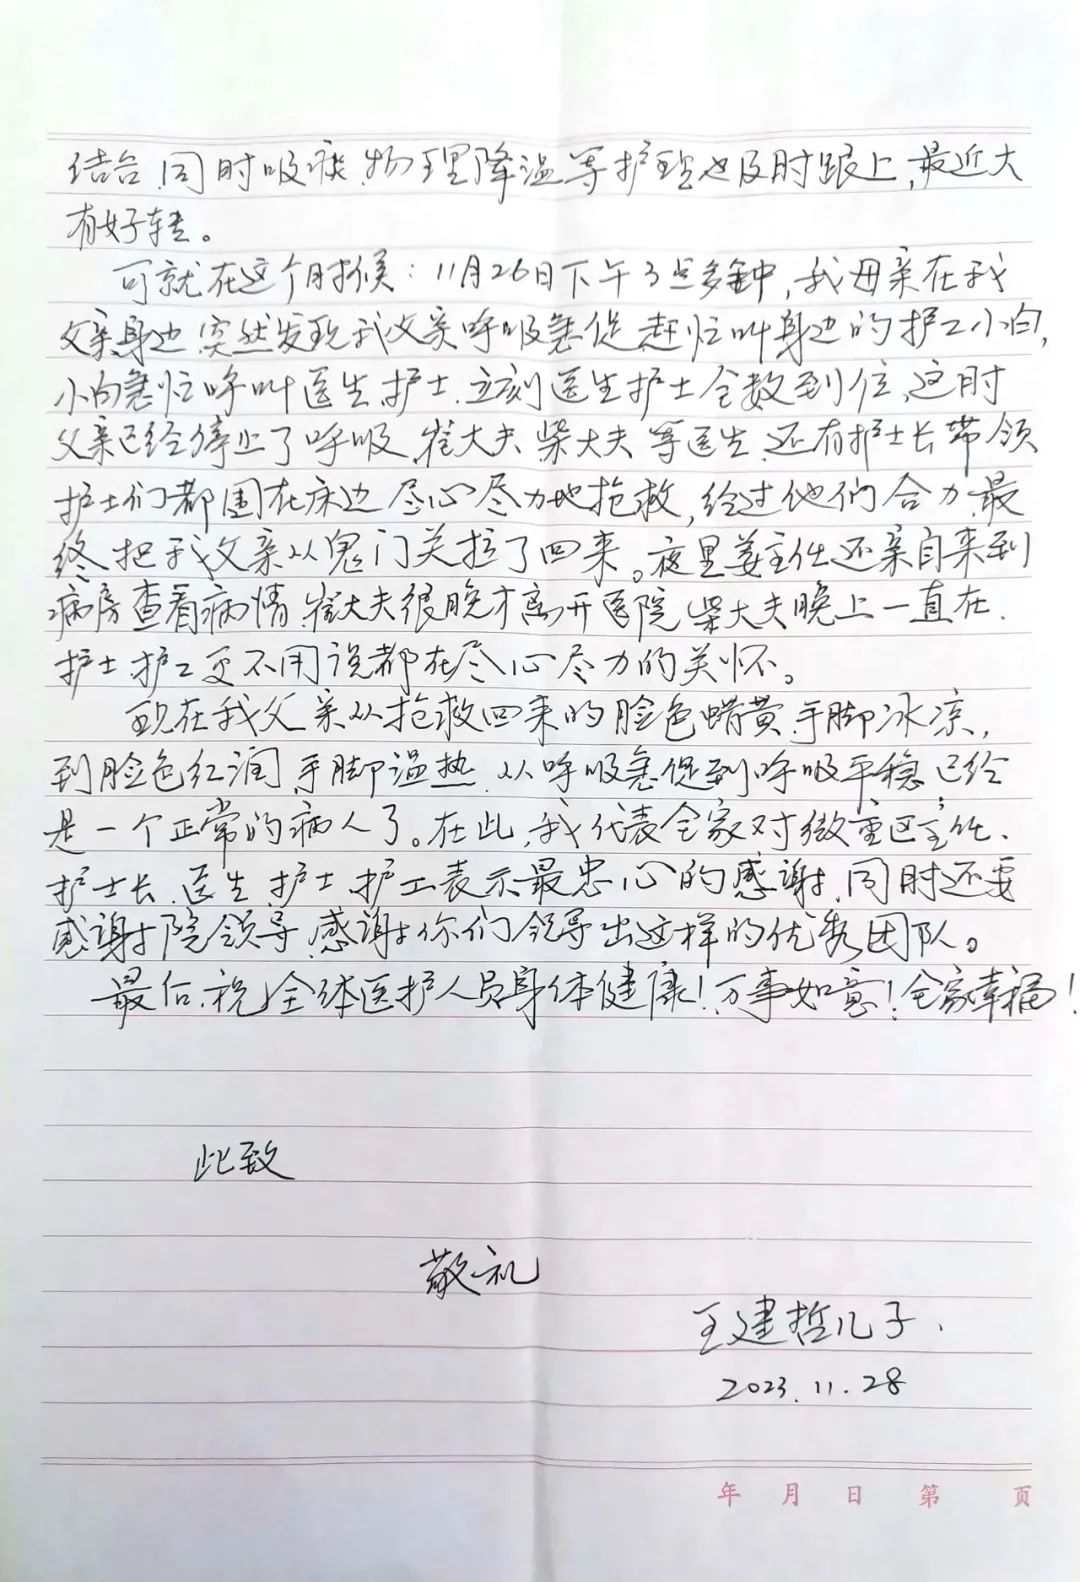 结合,同时吸痰,物理降温等护理也及时跟上,最近大
有好转。
可就在这个时候:11月26日下午3点多钟,我母亲在我
父亲身边,突然发现我父亲呼吸急促,赶忙叫身边的护工小白,
小白急忙呼叫医生护士,立刻医生护士全数到位,这时
父亲已经停止了呼吸,崔大夫、柴大夫等医生,还有护士长带领
护士们都围在床边尽心尽力地抢救,经过他们合力,最
终把我父亲从鬼门关拉了回来。夜里姜主任还亲自来到
病房查看病情,崔大夫很晚才离开医院,柴大夫晚上一直在.
护士、护工更不用说都在尽心尽力的关怀。
现在我父亲从抢救回来的脸色蜡黄,手脚冰凉,
到脸色红润,手脚温热,从呼吸急促到呼吸平稳,已经
是一个正常的病人了。在此,我代表全家对微重区主任、
护士长、医生、护士、护工表示最忠心的感谢,同时还要
感谢院领导,感谢你们领导出这样的优秀团队。
最后,祝全体医护人员身体健康!万事如意!全家幸福!
此致
敬礼
王建哲儿子.
2023.11.28
年 月 日 第 页